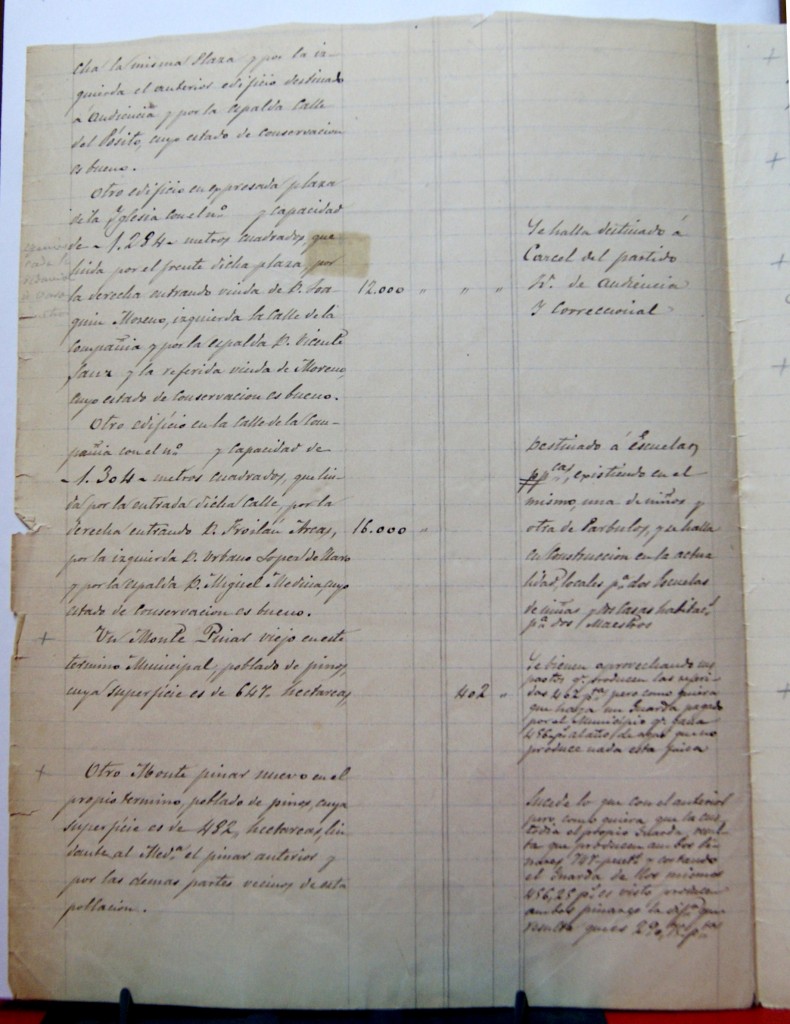 cha la misma Plaza y por la iz-
quierda el anterior edificio destinado
a Audiencia y por la espalda Calle
del Pósito, cuyo estado de conservacion
es bueno.
Otro edificio en expresada plaza
de la Yglesia con el nº y capacidad
de - 1.284 - metros cuadrados, que
linda por el frente dicha plaza, por
la derecha entrando viuda de D. Joa-
quin Moreno, izquierda la Calle de la
Compañia y por la espalda D. Vicente
Sanz y la referida viuda de Moreno,
cuyo estado de conservacion es bueno.
12.000 " " "
Se halla destinado á
Carcel del partido
Yd. de Audiencia
Y Correccional
Otro edificio en la Calle de la Com-
pañia con el nº y capacidad de
- 1.304 - metros cuadrados, que lin-
da por la entrada dicha Calle, por la
derecha entrando D. Froilán Arcas,
por la izquierda D. Urbano Lopez de Haro
y por la espalda D. Miguel Medina, cuyo
estado de conservacion es bueno.
16.000 "
Destinado á Escuelas
ppcas, existiendo en el
mismo, una de niños y
otra de Parbulos, y se halla
en Construccion en la actua
lidad, locales pª dos Escuelas
de niñas y dos casas habitac.
pª dos Maestros
+ Un Monte Pinar viejo en este
termino Municipal, poblado de pinos,
cuya superficie es de 647 hectareas,
402 "
Se vienen aprovechando sus
pastos q. producen las referi-
das 402 pts pero como quiera
que haya un Guarda pagado
por el Municipio q. gana
456 pts al año, de aqui que no
produce nada esta finca
+ Otro Monte pinar nuevo en el
propio termino, poblado de pinos, cuya
superficie es de 482, hectareas, lin-
dante al Medª el pinar anterior y
por las demas partes vecinos de esta
poblacion.
Sucede lo que con el anterior
pero, como quiera que la cus-
todia el propio Guarda, resul-
ta que producen ambos pi-
nares, 747 peset. y costando
el Guarda de los mismos
456,25 pts es visto producen
ambos pinares la difª que
resulta que es 290,75 ptas